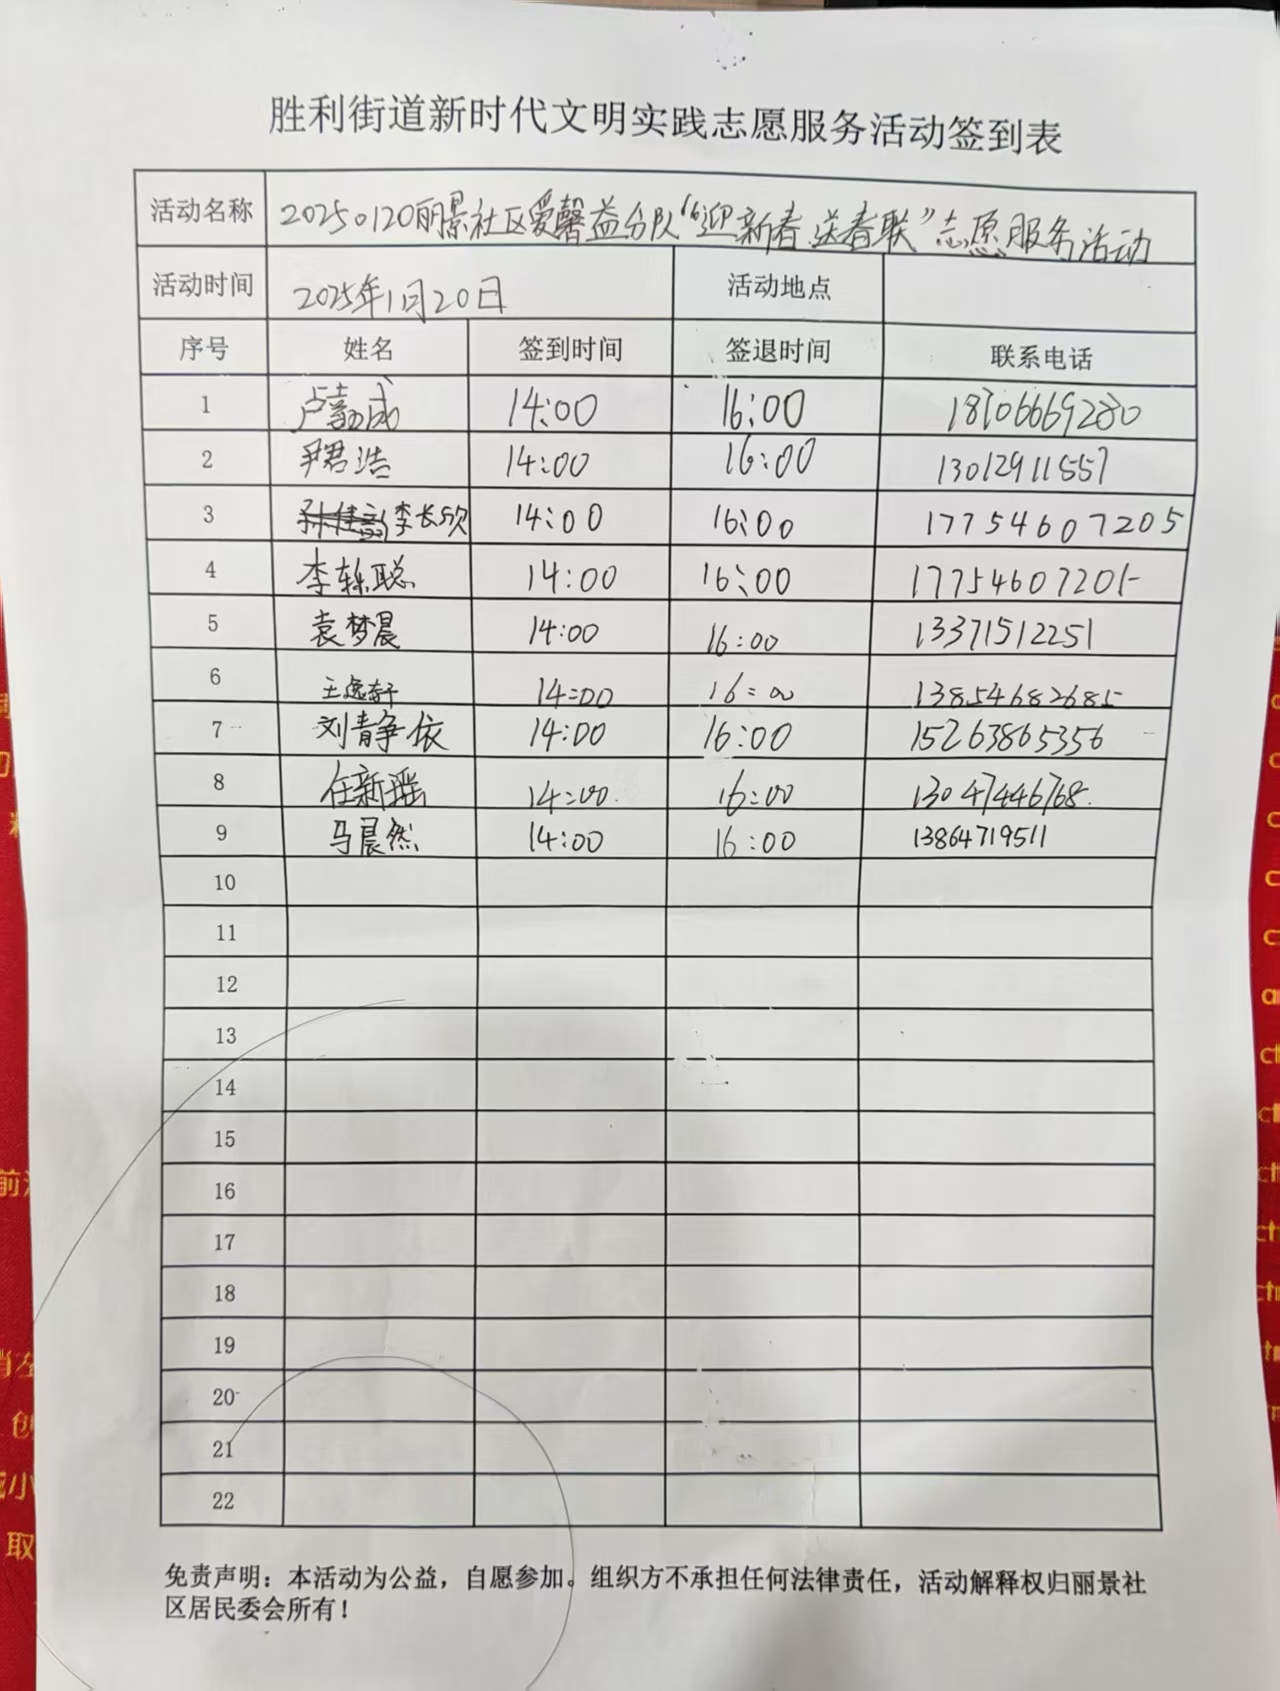 胜利街道新时代文明实践志愿服务活动签到表
活动名称 20250120丽景社区爱馨益分队“迎新春 送春联”志愿服务活动
活动时间 2025年1月20日 活动地点
序号 姓名 签到时间 签退时间 联系电话
1 卢嘉成 14:00 16:00 18706669280
2 尹君浩 14:00 16:00 13012911557
3 李长欣 14:00 16:00 17754607205
4 李轹聪 14:00 16:00 17754607205
5 袁梦晨 14:00 16:00 13371512251
6 王逸轩 14:00 16:00 13854682685
7 刘青争依 14:00 16:00 15263865356
8 任新瑶 14:00 16:00 13047446768
9 马晨然 14:00 16:00 13864719511
10
11
12
13
14
15
16
17
18
19
20
21
22
免责声明：本活动为公益，自愿参加。组织方不承担任何法律责任，活动解释权归丽景社
区居民委会所有！